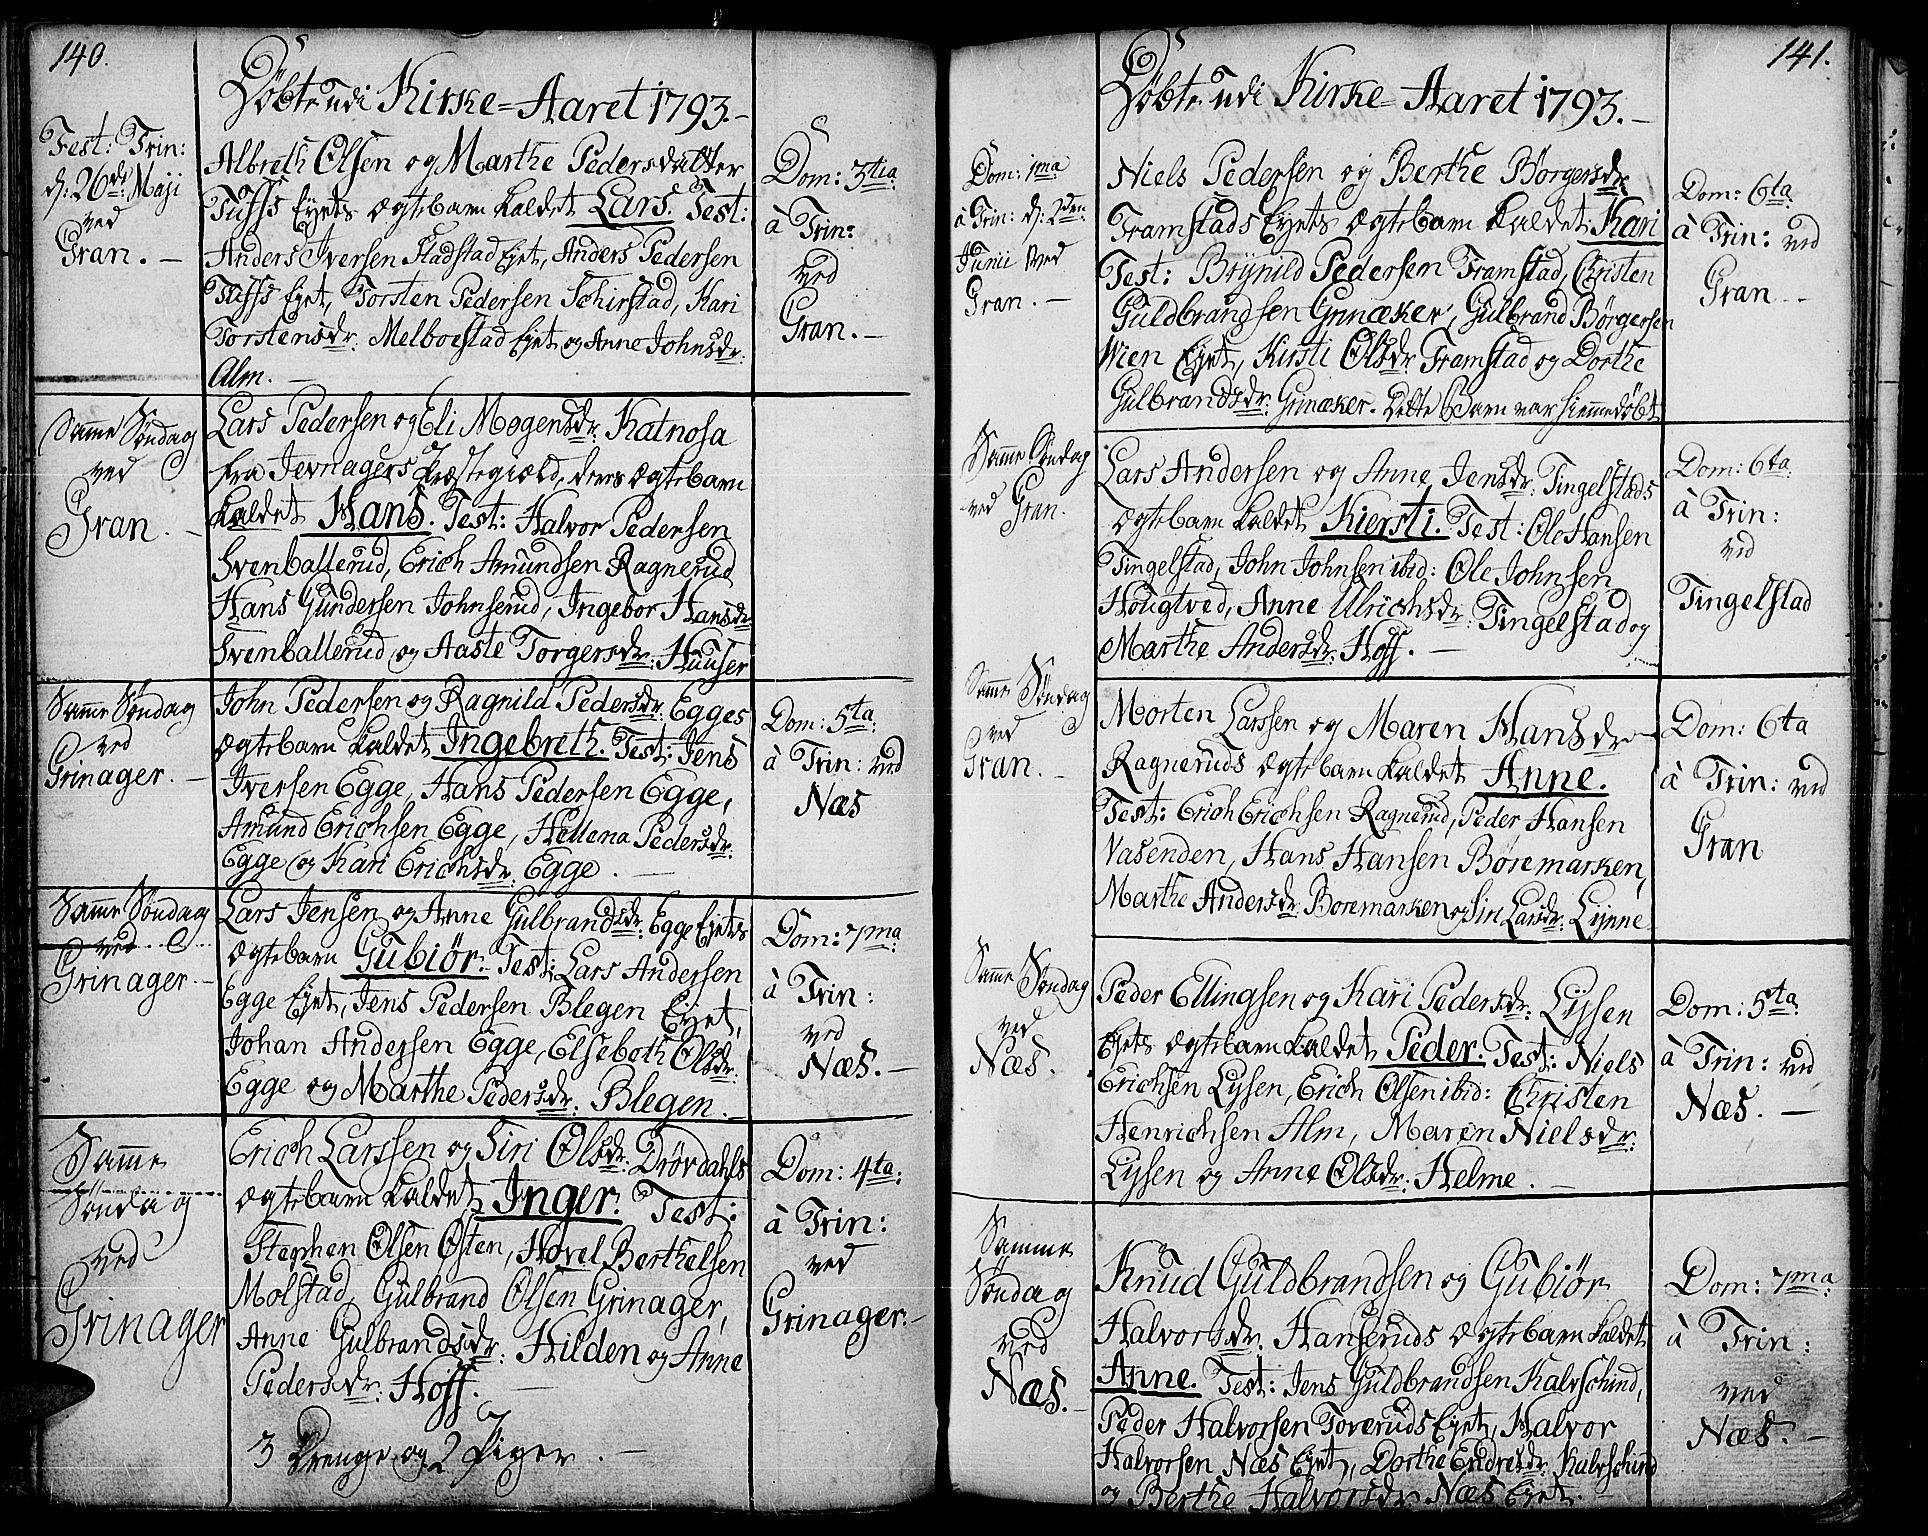 140.
Døbte udi Kirke=Aaret 1793.
Fest: Trin:
d: 26de Maji
ved
Gran.
Albreth Olsen og Marthe Pedersdatter
Tuffs Eyets ægtebarn kaldet Lars. Test:
Anders Iversen Fladstad Eyet, Anders Pedersen
Tuffs Eyet, Torsten Pedersen Schirstad, Kari
Torstensdr: Melboestad Eyet og Anne Johnsdr:
Alm.
Dom: 3tia
à Trin:
ved
Gran.
Samme Søndag
ved
Gran.
Lars Pedersen og Eli Mogensdr: Katnosa
fra Jevnagers Præstegiæld, deres ægtebarn
kaldet Hans. Test: Halvor Pedersen
Svenballerud, Erich Amundsen Ragnerud
Hans Gundersen Johnserud, Ingebor Hansdr:
Svenballerud og Aaste Torgersdr: Huuser
Samme Søndag
ved
Grinager.
John Pedersen og Ragnild Pedersdr: Egges
ægtebarn kaldet Ingebreth. Test: Jens
Iversen Egge, Hans Pedersen Egge,
Amund Erichsen Egge, Hellena Pedersdr:
Egge og Kari Erichsdr: Egge.
Dom: 5ta
à Trin: ved
Næs
Samme Søndag
ved
Grinager.
Lars Jensen og Anne Gulbrandsdr: Egge Eyets
ægtebarn Gubiør. Test: Lars Andersen
Egge Eyet, Jens Pedersen Blegen Eyet,
Johan Andersen Egge, Elsebeth Olsdr:
Egge og Marthe Pedersdr: Blegen.
Dom: 7ma
à Trin:
ved
Næs.
Samme
Søndag
ved
Grinager
Erich Larssen og Siri Olsdr: Drøvdahls
ægtebarn kaldet Inger. Test:
Stephen Olsen Østen, Hovel Berthelsen
Molstad, Gulbrand Olsen Grinager,
Anne Gulbrandsdr: Hilden og Anne
Pedersdr: Hoff.
Dom: 4ta:
à Trin:
ved
Grinager.
3 Drenge og 2 Piger.
141.
Døbte udi Kirke=Aaret 1793.
Dom: 1ma
à Trin: d: 2den
Junii ved
Gran.
Niels Pedersen og Berthe Børgersdr
Framstads Eyets ægtebarn kaldet: Kari
Test: Brynild Pedersen Framstad, Christen
Guldbrandsen Grinæker, Gulbrand Børgersen
Wien Eyet, Kirsti Olsdr: Framstad og Dorthe
Gulbrandsdr: Grinæker. dette Barn var hiemmedøbt
Dom: 6ta
à Trin: ved
Gran
Samme Søndag
ved Gran.
Lars Andersen og Anne Jensdr: Tingelstads
ægtebarn kaldet Kiersti. Test: Ole Hansen
Tingelstad, John Johnsen ibid: Ole Johnsen
Hougtved, Anne Ulrichsdr: Tingelstad og
Marthe Andersdr: Hoff.
Dom: 6ta
à Trin:
ved
Tingelstad
Samme Søndag
ved
Gran.
Morten Larssen og Maren Hansdr
Ragneruds ægtebarn kaldet Anne.
Test: Erich Erichsen Ragnerud, Peder Hansen
Vasenden, Hans Hansen Børemarken,
Marthe Andersdr: Boremarken og Siri Larsdr: Lynne
Dom: 6ta
à Trin: ved
Gran
Samme Søndag
ved
Næs.
Peder Ellingsen og Kari Pedersdr: Lyssen
Eyets ægtebarn kaldet Peder. Test: Niels
Erichsen Lyssen, Erich Olsen ibid: Christen
Henrichsen Alm, Maren Nielsdr:
Lyssen og Anne Olsdr: Helme.
Dom: 5ta
à Trin: ved
Næs.
Samme
Søndag
ved
Næs.
Knud Guldbrandsen og Gubiør
Halvorsdr: Hanseruds ægtebarn kaldet
Anne. Test: Jens Guldbrandsen Kalvschind,
Peder Halvorsen Toveruds Eyet, Halvor
Halvorsen Næs Eyet, Dorthe Endresdr: Kalvschind
og Berthe Halvorsdr: Næs Eyet.
Dom: 7ma
à Trin:
ved
Næs.